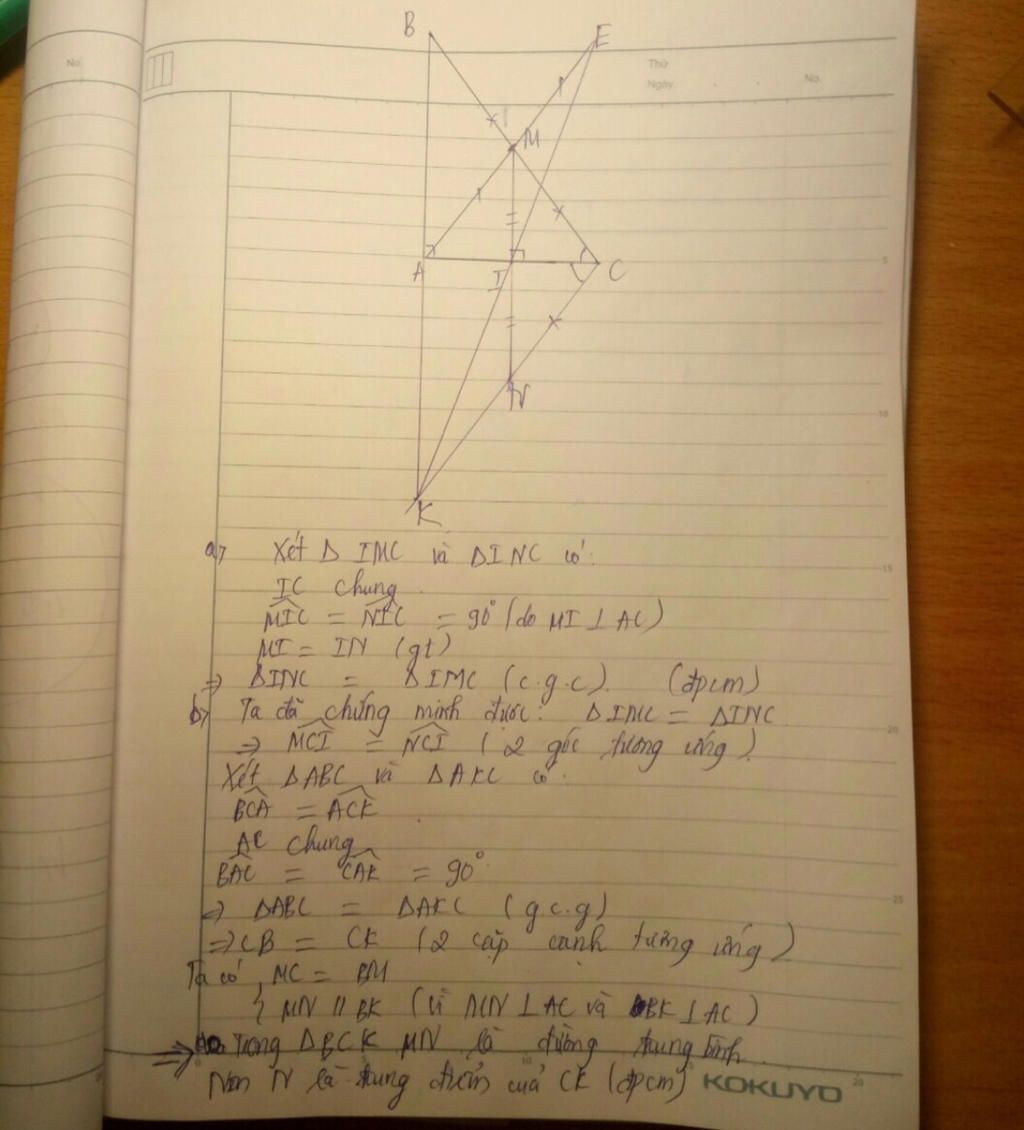 No.
Thứ
Ngày
No.
B
E
M
A
I
C
N
K
5
10
15
20
25
a) Xét Δ IMC và ΔINC có:
IC chung
MIC = NIC = 90° (do MI ⊥ AC)
MI = IN (gt)
⇒ ΔINC = ΔIMC (c.g.c). (đpcm)
b) Ta đã chứng minh được: ΔIMC = ΔINC
⇒ MCI = NCI (2 góc tương ứng)
Xét ΔABC và ΔAKC có:
BCA = ACK
AC chung
BAC = CAK = 90°
⇒ ΔABC = ΔAKC (g.c.g)
⇒ CB = CK (2 cặp cạnh tương ứng)
Ta có { MC = BM
MN // BK (vì MN ⊥ AC và BK ⊥ AC)
⇒ Trong ΔBCK MN là đường trung bình
Nên N là trung điểm của CK (đpcm)
KOKUYO
0
10
20